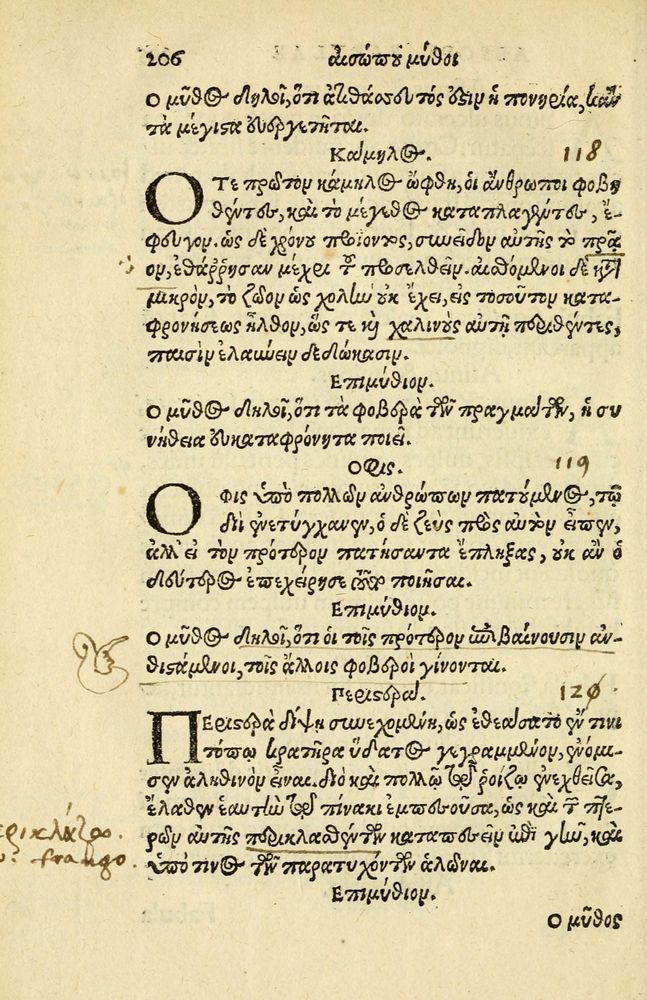 206 αἰσώπου μῦθοι
Ο μῦθος δηλοῖ, ὅτι ἀτιθάσσευτός ἐστιν ἡ πονηρία, κἂν
τὰ μέγιστα εὐεργετῆται.
Κάμηλος. 118
ΟΤε πρῶτον κάμηλος ὤφθη, οἱ ἄνθρωποι φοβη
θέντες, καὶ τὸ μέγεθος καταπλαγέντες, ἔ-
φευγον. ὡς δὲ χρόνου προϊόντος, συνεῖδον αὐτῆς τὸ πρᾶ
ον, ἐθάῤῥησαν μέχρι τοῦ προσελθεῖν. αἰσθόμενοι δὲ κατὰ
μικρὸν, τὸ ζῶον ὡς χολὴν οὐκ ἔχει, εἰς τοσοῦτον κατα-
φρονήσεως ἦλθον, ὥς τε καὶ χαλινοὺς αὐτῇ περιθέντες,
παισὶν ἐλαύνειν δεδώκασιν.
Επιμύθιον.
Ο μῦθος δηλοῖ, ὅτι τὰ φοβερὰ τῶν πραγμάτων, ἡ συ
νήθεια εὐκαταφρόνητα ποιεῖ.
Οφις. 119
ΟΦις ὑπὸ πολλῶν ἀνθρώπων πατούμενος, τῷ
διὶ ἐνετύγχανεν, ὁ δὲ ζεὺς πρὸς αὐτὸν εἶπεν,
ἀλλ' εἰ τὸν πρότερον πατήσαντα ἔπληξας, οὐκ ἂν ὁ
δεύτερος ἐπεχείρησε τοῦτο ποιῆσαι.
Επιμύθιον.
Ο μῦθος δηλοῖ, ὅτι οἱ τοῖς πρότερον ἐπιβαίνουσιν ἀν-
θιστάμενοι, τοῖς ἄλλοις φοβεροὶ γίνονται.
Περιστερά. 120
ΠΕριστερὰ δίψῃ συνεχομένη, ὡς ἐθεάσατο ἔν τινι
τόπῳ κρατῆρα ὕδατος γεγραμμένον, ἐνόμι-
σεν ἀληθινὸν εἶναι. διὸ καὶ πολλῷ τῷ ῥοίζῳ ἐνεχθεῖσα,
ἔλαθεν ἑαυτὴν τῷ πίνακι ἐμπεσοῦσα, ὡς καὶ τῶν πτε-
ρῶν αὐτῆς περικλασθέντων καταπεσεῖν ἐπὶ γῆν, καὶ
ὑπό τινος τῶν παρατυχόντων ἁλῶναι.
ερικλάζω.
frango.
Επιμύθιον.
Ο μῦθος